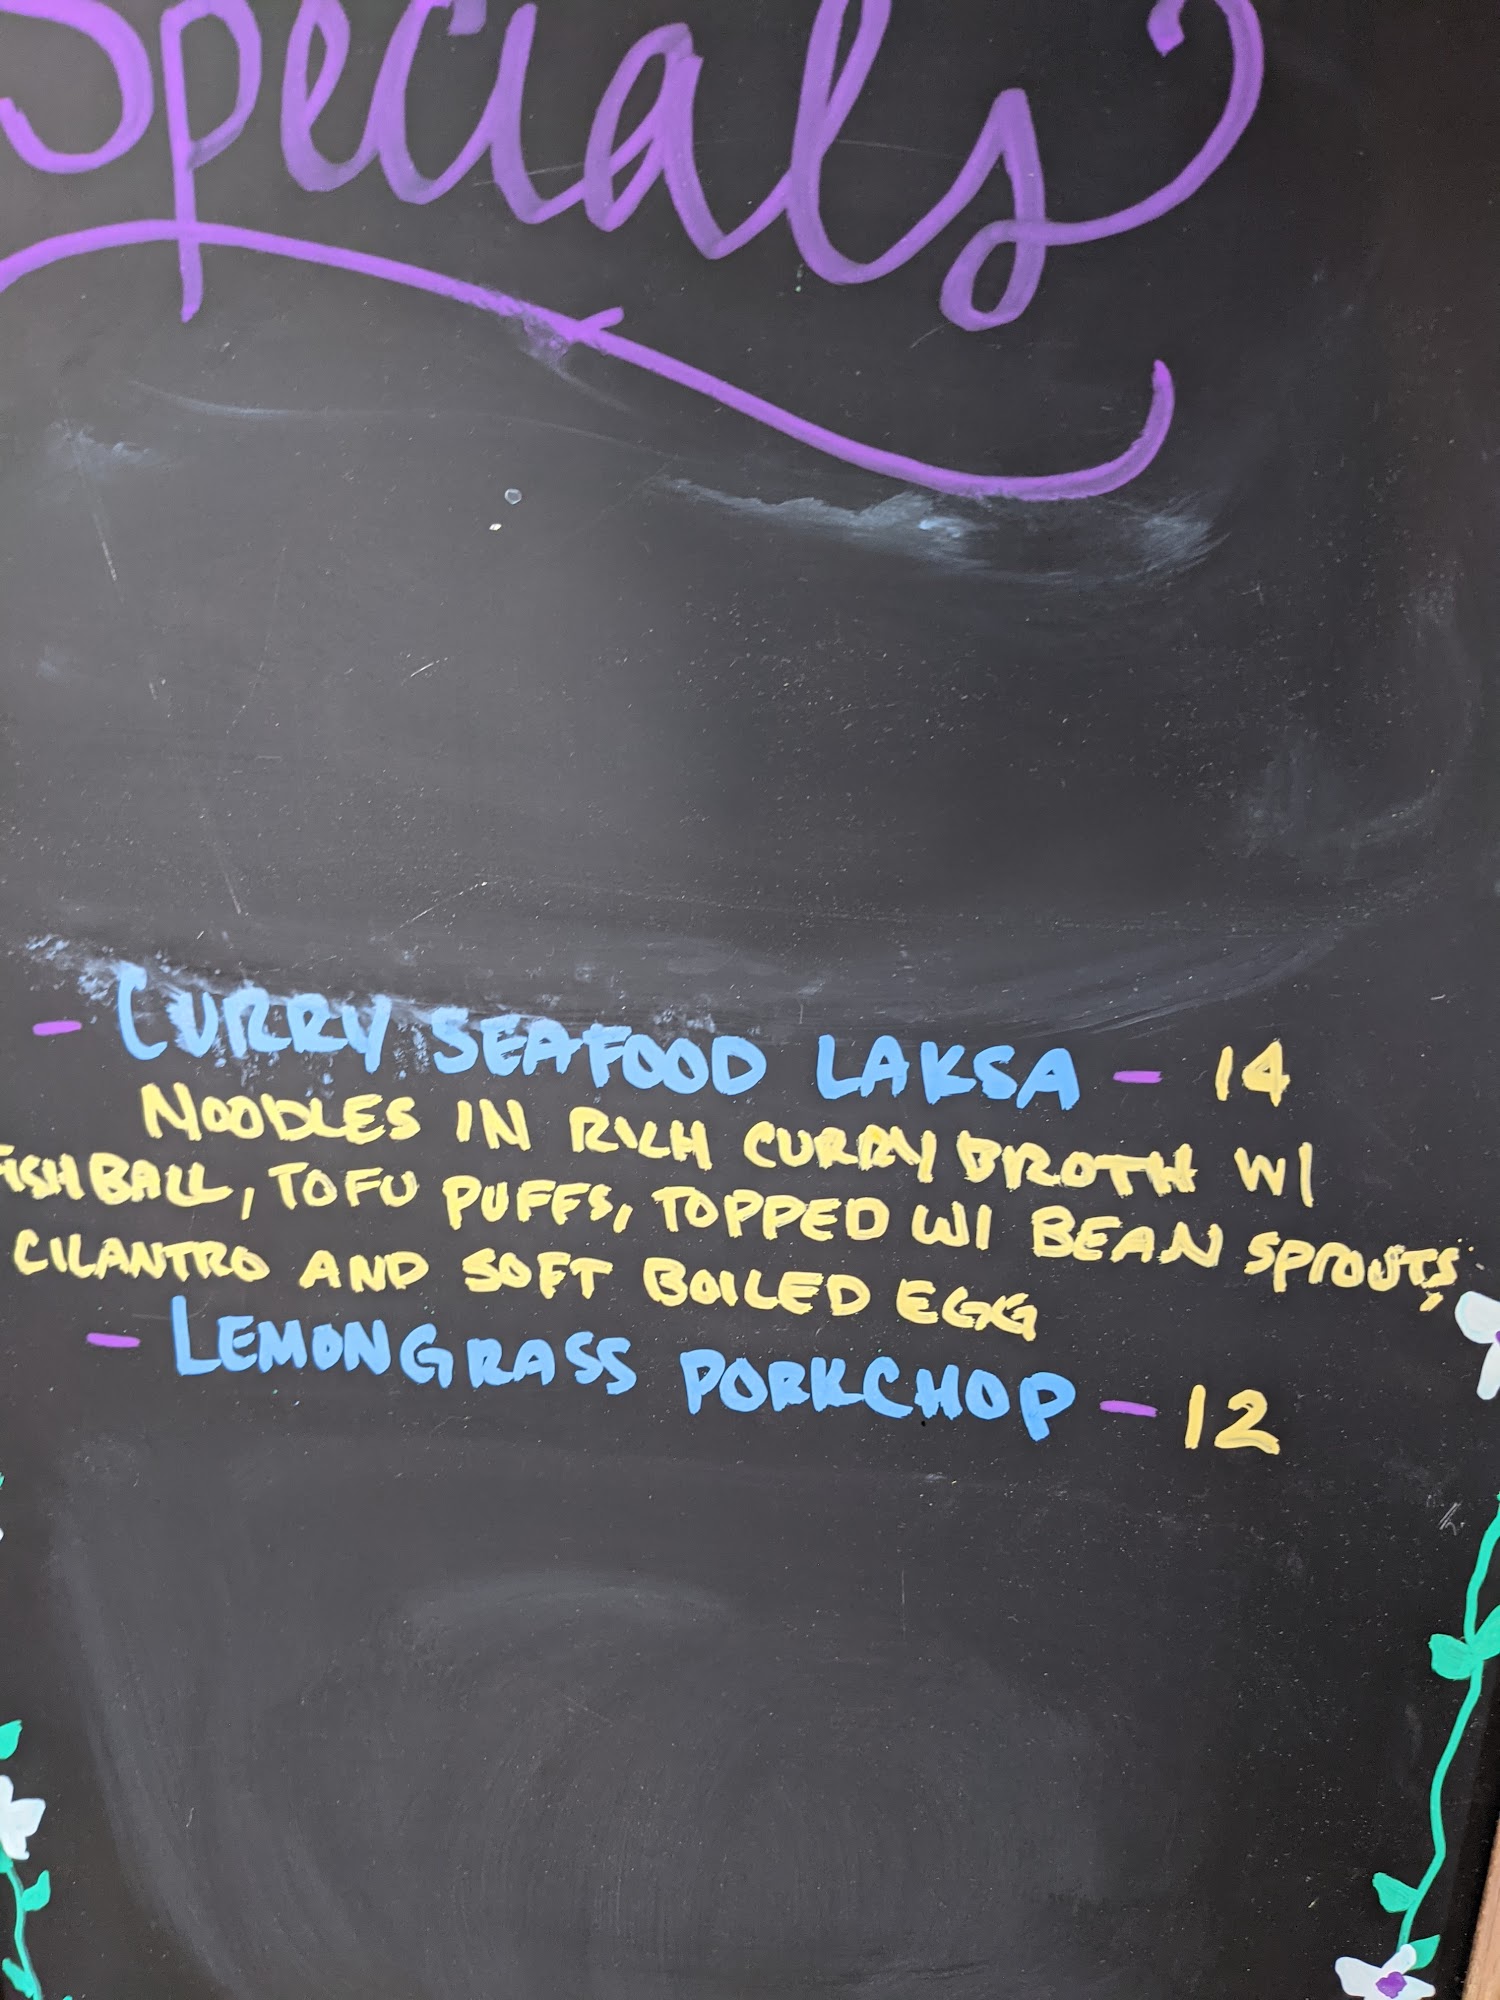 Specials
- CURRY SEAFOOD LAKSA - 14
NOODLES IN RICH CURRY BROTH W/
FISHBALL, TOFU PUFFS, TOPPED W/ BEAN SPROUTS,
CILANTRO AND SOFT BOILED EGG
- LEMONGRASS PORKCHOP - 12